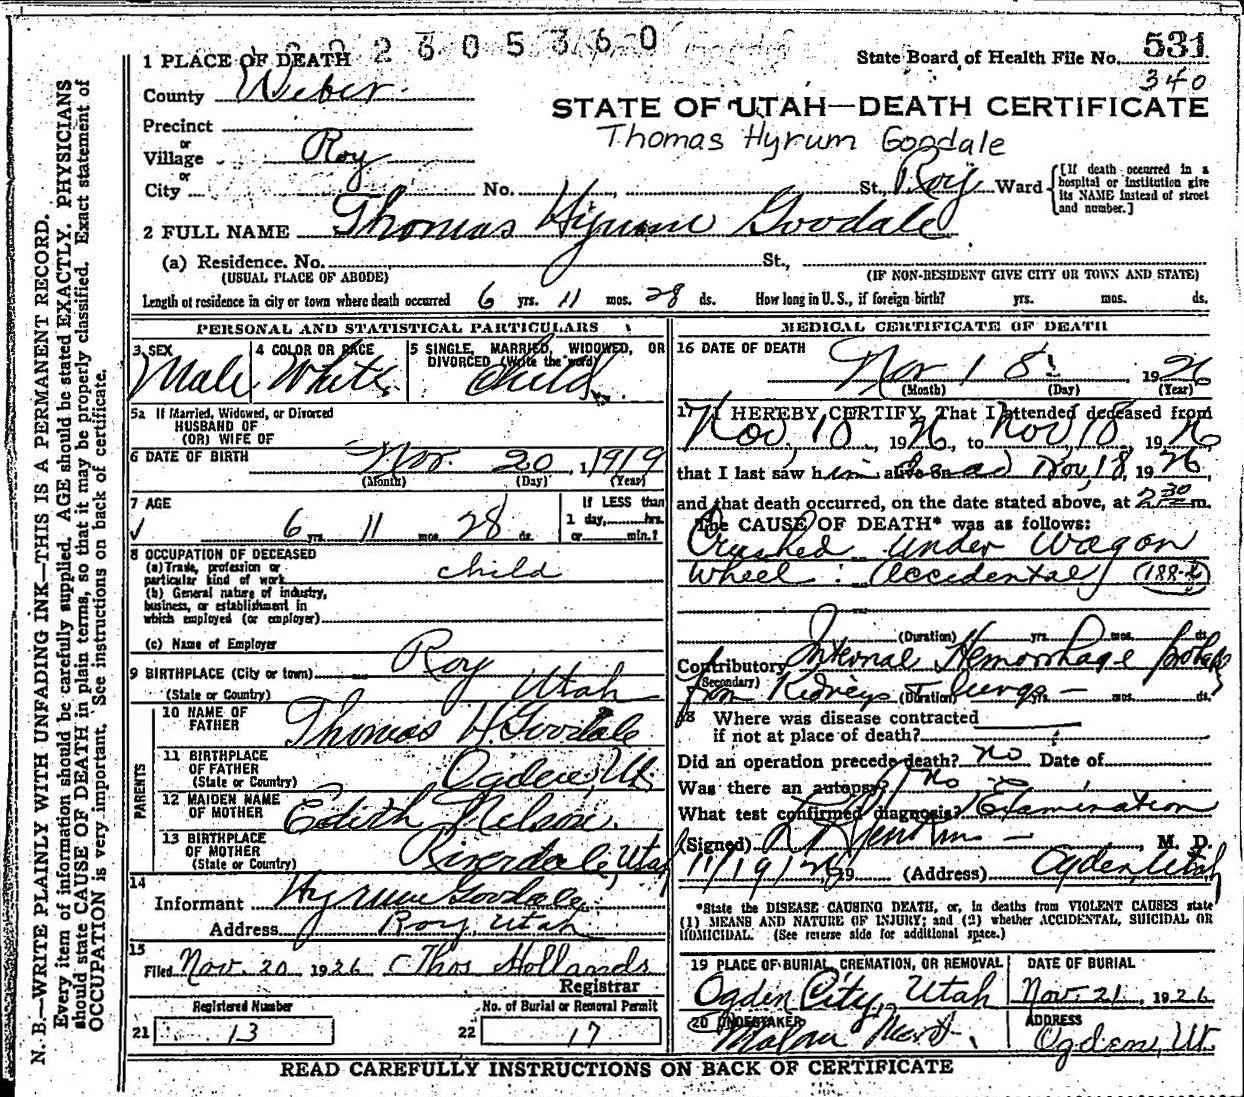 1 PLACE OF DEATH
2605360
State Board of Health File No. 531
340
County Weber
STATE OF UTAH—DEATH CERTIFICATE
Precinct
Thomas Hyrum Goodale
or
Village Roy
or
City No. , St., Roy Ward
[If death occurred in a
hospital or institution give
its NAME instead of street
and number.]
2 FULL NAME Thomas Hyrum Goodale
(a) Residence. No. St.,
(USUAL PLACE OF ABODE) (IF NON-RESIDENT GIVE CITY OR TOWN AND STATE)
Length of residence in city or town where death occurred 6 yrs. 11 mos. 28 ds. How long in U. S., if foreign birth? yrs. mos. ds.
PERSONAL AND STATISTICAL PARTICULARS
3 SEX
Male
4 COLOR OR RACE
White
5 SINGLE, MARRIED, WIDOWED, OR
DIVORCED (Write the word)
Child
5a If Married, Widowed, or Divorced
HUSBAND OF
(OR) WIFE OF
6 DATE OF BIRTH Nov. 20, 1919
(Month) (Day) (Year)
7 AGE
6 yrs. 11 mos. 28 ds.
If LESS than
1 day, hrs.
or min.?
8 OCCUPATION OF DECEASED
(a) Trade, profession or
particular kind of work child
(b) General nature of industry,
business, or establishment in
which employed (or employer)
(c) Name of Employer
9 BIRTHPLACE (City or town) Roy
(State or Country) Utah
PARENTS
10 NAME OF
FATHER Thomas H. Goodale
11 BIRTHPLACE
OF FATHER Ogden, Ut.
(State or Country)
12 MAIDEN NAME
OF MOTHER Edith Nelson.
13 BIRTHPLACE
OF MOTHER Riverdale, Utah
(State or Country)
14
Informant Hyrum Goodale
Address Roy, Utah
15
Filed Nov. 20 1926 Thos Hollands
Registrar
Registered Number
21 13
No. of Burial or Removal Permit
22 17
MEDICAL CERTIFICATE OF DEATH
16 DATE OF DEATH
Nov 18 1926
(Month) (Day) (Year)
17 I HEREBY CERTIFY, That I attended deceased from
Nov, 18, 1926, to Nov, 18, 1926
that I last saw him alive on dead Nov, 18, 1926,
and that death occurred, on the date stated above, at 2 30 m.
The CAUSE OF DEATH* was as follows:
Crushed under wagon
wheel: Accidental
(Duration) yrs. mos. ds.
Contributory Internal Hemorrhage probably
(Secondary)
from Kidneys & lungs —
(Duration) yrs. mos. ds.
18 Where was disease contracted
if not at place of death?
Did an operation precede death? no Date of
Was there an autopsy? no
What test confirmed diagnosis? Examination
(Signed) , M. D.
11/19/26 19 (Address) Ogden, Utah
*State the DISEASE CAUSING DEATH, or, in deaths from VIOLENT CAUSES state
(1) MEANS AND NATURE OF INJURY; and (2) whether ACCIDENTAL, SUICIDAL OR
HOMICIDAL. (See reverse side for additional space.)
19 PLACE OF BURIAL, CREMATION, OR REMOVAL
Ogden City, Utah
DATE OF BURIAL
Nov. 21, 1926
20 UNDERTAKER
ADDRESS
Ogden, Ut.
READ CAREFULLY INSTRUCTIONS ON BACK OF CERTIFICATE
N. B.—WRITE PLAINLY WITH UNFADING INK—THIS IS A PERMANENT RECORD.
Every item of information should be carefully supplied. AGE should be stated EXACTLY. PHYSICIANS
should state CAUSE OF DEATH in plain terms, so that it may be properly classified. Exact statement of
OCCUPATION is very important. See instructions on back of certificate.